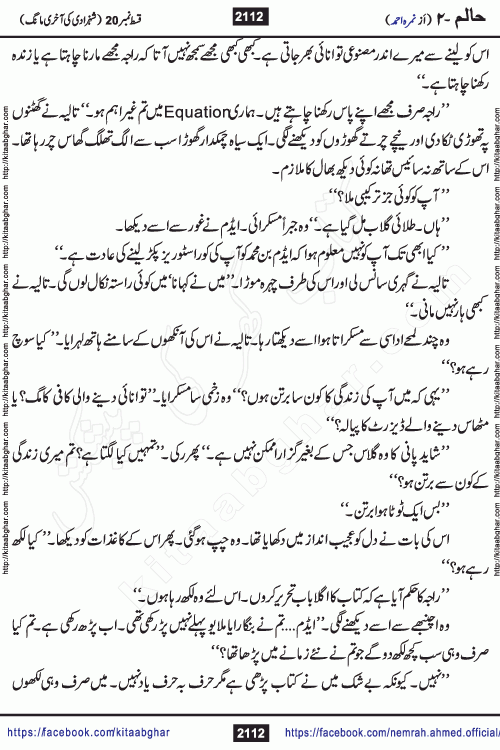 حالم -۲ (از نمرہ احمد)
2112
قسط نمبر 20 (شہزادی کی آخری مانگ)
اس کو لینے سے میرے اندر مصنوعی توانائی بھر جاتی ہے۔ کبھی کبھی مجھے سمجھ نہیں آتا کہ راجہ مجھے مارنا چاہتا ہے یا زندہ
رکھنا چاہتا ہے۔‘‘
’’راجہ صرف مجھے اپنے پاس رکھنا چاہتے ہیں۔ ہماری Equation میں تم غیر اہم ہو۔‘‘ تالیہ نے گھٹنوں
پہ ٹھوڑی ٹکا دی اور نیچے چرتے گھوڑوں کو دیکھنے لگی۔ ایک سیاہ چمکدار گھوڑا سب سے الگ تھلگ گھاس چر رہا تھا۔
اس کے ساتھ نہ سائیس تھا نہ کوئی دیکھ بھال کا ملازم۔
’’آپ کو کوئی جز ترکیبی ملا؟‘‘
’’ہاں۔ طلائی گلاب مل گیا ہے۔‘‘ وہ جبراً مسکرائی۔ ایڈم نے غور سے اسے دیکھا۔
’’کیا ابھی تک آپ کو نہیں معلوم ہوا کہ ایڈم بن محمد کو آپ کی کور اسٹوریز پکڑ لینے کی عادت ہے۔‘‘
تالیہ نے گہری سانس لی اور اس کی طرف چہرہ موڑا۔ ’’میں نے کہا نا‘ میں کوئی راستہ نکال لوں گی۔ تالیہ نے
کبھی ہار نہیں مانی۔‘‘
وہ چند لمحے اداسی سے مسکراتا ہوا اسے دیکھتا رہا۔ تالیہ نے اس کی آنکھوں کے سامنے ہاتھ لہرایا۔ ’’کیا سوچ
رہے ہو؟‘‘
’’یہی کہ میں آپ کی زندگی کا کون سا برتن ہوں؟‘‘ وہ زخمی سا مسکرایا۔ ’’توانائی دینے والی کافی کا مگ؟ یا
مٹھاس دینے والے ڈیزرٹ کا پیالہ؟‘‘
’’شاید پانی کا وہ گلاس جس کے بغیر گزارا ممکن نہیں ہے۔‘‘ پھر رکی۔ ’’تمہیں کیا لگتا ہے؟ تم میری زندگی
کے کون سے برتن ہو؟‘‘
’’بس ایک ٹوٹا ہوا برتن۔‘‘
اس کی بات نے دل کو عجیب انداز میں دکھایا تھا۔ وہ چپ ہوگئی۔ پھر اس کے کاغذات کو دیکھا۔ ’’کیا لکھ
رہے ہو؟‘‘
’’راجہ کا حکم آیا ہے کہ کتاب کا اگلا باب تحریر کروں۔ اس لئے وہ لکھ رہا ہوں۔‘‘
وہ اچنبھے سے اسے دیکھنے لگی۔ ’’ایڈم.... تم نے بنگارایا ملایو پہلے نہیں پڑھ رکھی تھی۔ اب پڑھ رکھی ہے۔ تم کیا
صرف وہی سب کچھ لکھ دو گے جو تم نے نئے زمانے میں پڑھا تھا؟‘‘
’’نہیں۔ کیونکہ بے شک میں نے کتاب پڑھی ہے مگر حرف بہ حرف یاد نہیں۔ میں صرف وہی لکھوں
https://facebook.com/kitaabghar
2112
https://facebook.com/nemrah.ahmed.official/
http://kitaabghar.com http://kitaabghar.com http://kitaabghar.com http://kitaabghar.com http://kitaabghar.com
http://kitaabghar.com http://kitaabghar.com http://kitaabghar.com http://kitaabghar.com http://kitaabghar.com